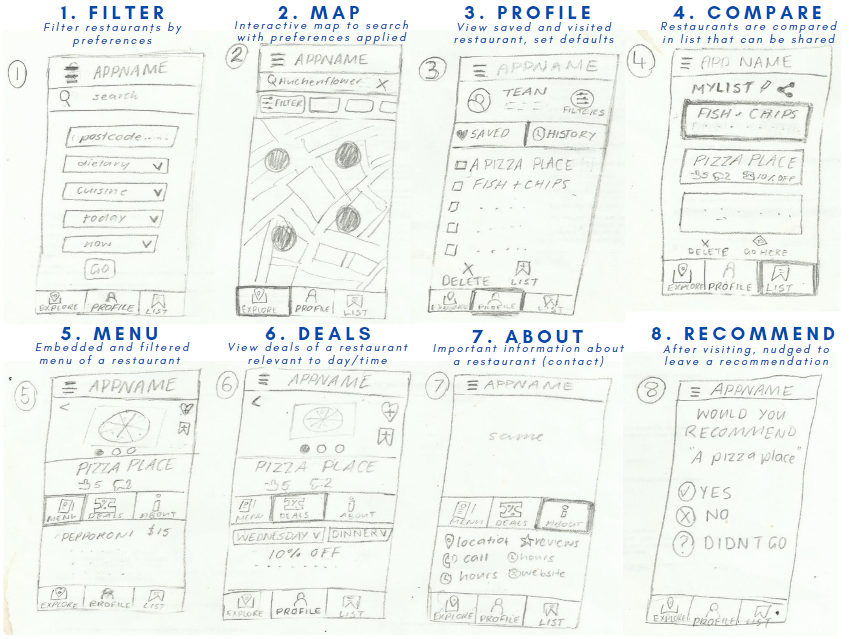 1. FILTER
Filter restaurants by
preferences
1
APPNAME
search
postcode.....
dietary
cuisine
today
now
GO
EXPLORE PROFILE LIST
2. MAP
Interactive map to search
with preferences applied
2
APPNAME
Auchenflower X
FILTER
EXPLORE PROFILE LIST
3. PROFILE
View saved and visited
restaurant, set defaults
3
APPNAME
TEAN
FILTERS
SAVED HISTORY
A PIZZA PLACE
FISH + CHIPS
DELETE LIST
EXPLORE PROFILE LIST
4. COMPARE
Restaurants are compared
in list that can be shared
4
APP NAME
MYLIST
FISH + CHIPS
PIZZA PLACE
5 2 10% OFF
DELETE GO HERE
EXPLORE PROFILE LIST
5. MENU
Embedded and filtered
menu of a restaurant
5
APPNAME
<
PIZZA PLACE
5 2
MENU DEALS ABOUT
PEPPORONI $15
EXPLORE PROFILE LIST
6. DEALS
View deals of a restaurant
relevant to day/time
6
APPNAME
<
PIZZA PLACE
5 2
MENU DEALS ABOUT
WEDNESDAY DINNER
10% OFF
EXPLORE PROFILE LIST
7. ABOUT
Important information about
a restaurant (contact)
7
APPNAME
same
MENU DEALS ABOUT
location reviews
call hours
hours website
EXPLORE PROFILE LIST
8. RECOMMEND
After visiting, nudged to
leave a recommendation
8
APPNAME
WOULD YOU
RECOMMEND
"A pizza place"
YES
NO
? DIDNT GO
EXPLORE PROFILE LIST